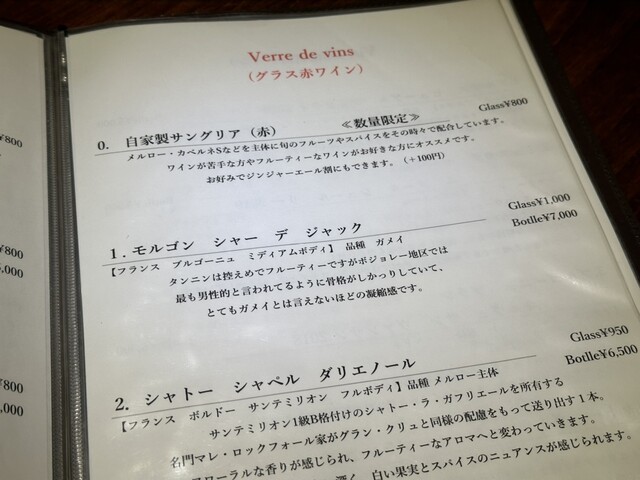 Verre de vins
(グラス赤ワイン)
Glass¥800
0. 自家製サングリア(赤) ≪数量限定≫
メルロー・カベルネSなどを主体に旬のフルーツやスパイスをその時々で配合しています。
ワインが苦手な方やフルーティーなワインがお好きな方にオススメです。
お好みでジンジャーエール割にもできます。(+100円)
Glass¥1,000
Botlle¥7,000
1. モルゴン シャー デ ジャック
【フランス ブルゴーニュ ミディアムボディ】 品種 ガメイ
タンニンは控えめでフルーティーですがボジョレー地区では
最も男性的と言われてるように骨格がしかっりしていて、
とてもガメイとは言えないほどの凝縮感です。
Glass¥950
Botlle¥6,500
2. シャトー シャペル ダリエノール
【フランス ボルドー サンテミリオン フルボディ】品種 メルロー主体
サンテミリオン1級B格付けのシャトー・ラ・ガフリエールを所有する
名門マレ・ロックフォール家がグラン・クリュと同様の配慮をもって送り出す1本。
フローラルな香りが感じられ、フルーティーなアロマへと変わっていきます。
深く、白い果実とスパイスのニュアンスが感じられます。
¥800
¥800
,000
¥800
,000